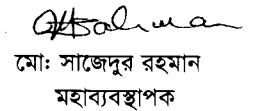 মো: সাজেদুর রহমান
মহাব্যবস্থাপক